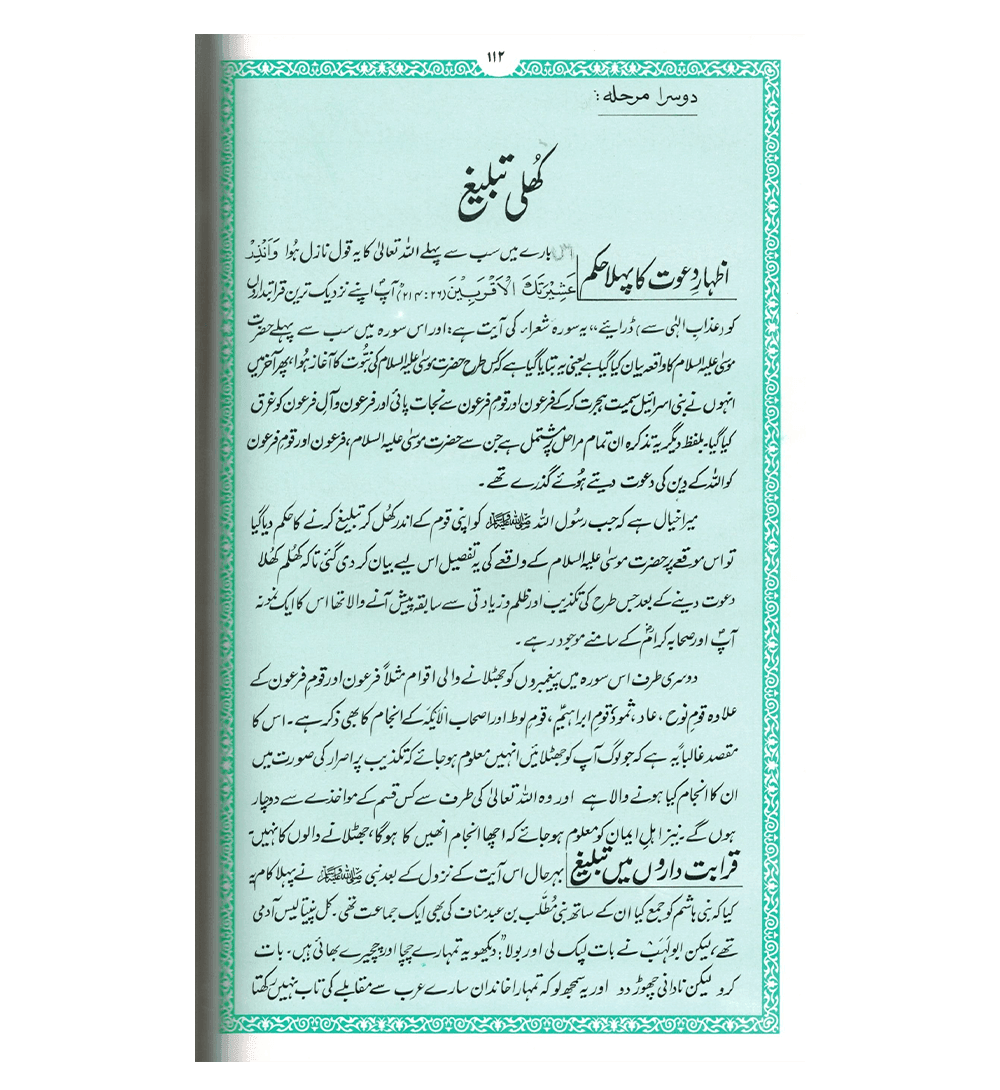 ۱۱۲
دوسرا مرحلہ :
کھُلی تبلیغ
اظہارِ دعوت کا پہلا حکم
اس بارے میں سب سے پہلے اللہ تعالیٰ کا یہ قول نازل ہُوا وَاَنْذِرْ
عَشِيْرَتَكَ الْاَقْرَبِيْنَ (۲۱۴:۲۶) آپؐ اپنے نزدیک ترین قرابتداروں
کو (عذابِ الٰہی سے) ڈرائیے،، یہ سورہ شعراء کی آیت ہے؛ اور اس سورہ میں سب سے پہلے حضرت
موسٰی علیہ السلام کا واقعہ بیان کیا گیا ہے یعنی یہ بتایا گیا ہے کہ کس طرح حضرت موسٰی علیہ السلام کی نبُوت کا آغاز ہُوا، پھر آخر میں
انہوں نے بنی اسرائیل سمیت ہجرت کر کے فرعون اور قومِ فرعون سے نجات پائی اور فرعون و آلِ فرعون کو غرق
کیا گیا۔ بلفظِ دیگر یہ تذکرہ ان تمام مراحل پر مشتمل ہے جن سے حضرت موسٰی علیہ السلام، فرعون اور قومِ فرعون
کو اللہ کے دین کی دعوت دیتے ہُوئے گذرے تھے۔
میرا خیال ہے کہ جب رسُول اللہ ﷺ کو اپنی قوم کے اندر کھُل کر تبلیغ کرنے کا حکم دیا گیا
تو اس موقعے پر حضرت موسٰی علیہ السلام کے واقعے کی یہ تفصیل اس لیے بیان کر دی گئی تاکہ کھُلم کھُلا
دعوت دینے کے بعد جس طرح کی تکذیب اور ظلم و زیادتی سے سابقہ پیش آنے والا تھا اس کا ایک نمونہ
آپؐ اور صحابہ کرامؓ کے سامنے موجود رہے۔
دوسری طرف اس سورہ میں پیغمبروں کو جھٹلانے والی اقوام مثلاً فرعون اور قومِ فرعون کے
علاوہ قومِ نوح، عاد، ثمود، قومِ ابراہیمؑ، قومِ لوط اور اصحاب الاَیکہ کے انجام کا بھی ذکر ہے۔ اس کا
مقصد غالباً یہ ہے کہ جو لوگ آپ کو جھٹلائیں انہیں معلوم ہو جائے کہ تکذیب پر اصرار کی صورت میں
ان کا انجام کیا ہونے والا ہے اور وہ اللہ تعالیٰ کی طرف سے کس قسم کے مواخذے سے دوچار
ہوں گے۔ نیز اہلِ ایمان کو معلوم ہو جائے کہ اچھا انجام انھیں کا ہو گا، جھٹلانے والوں کا نہیں۔
قرابت داروں میں تبلیغ
بہرحال اس آیت کے نزول کے بعد نبی ﷺ نے پہلا کام یہ
کیا کہ بنی ہاشم کو جمع کیا ان کے ساتھ بنی مُطَّلِب بن عبد مناف کی بھی ایک جماعت تھی۔ کل پینتالیس آدمی
تھے، لیکن ابولہَب نے بات لپک لی اور بولا: "دیکھو یہ تمہارے چچا اور چچیرے بھائی ہیں۔ بات
کرو لیکن نادانی چھوڑ دو اور یہ سمجھ لو کہ تمہارا خاندان سارے عرب سے مقابلے کی تاب نہیں رکھتا